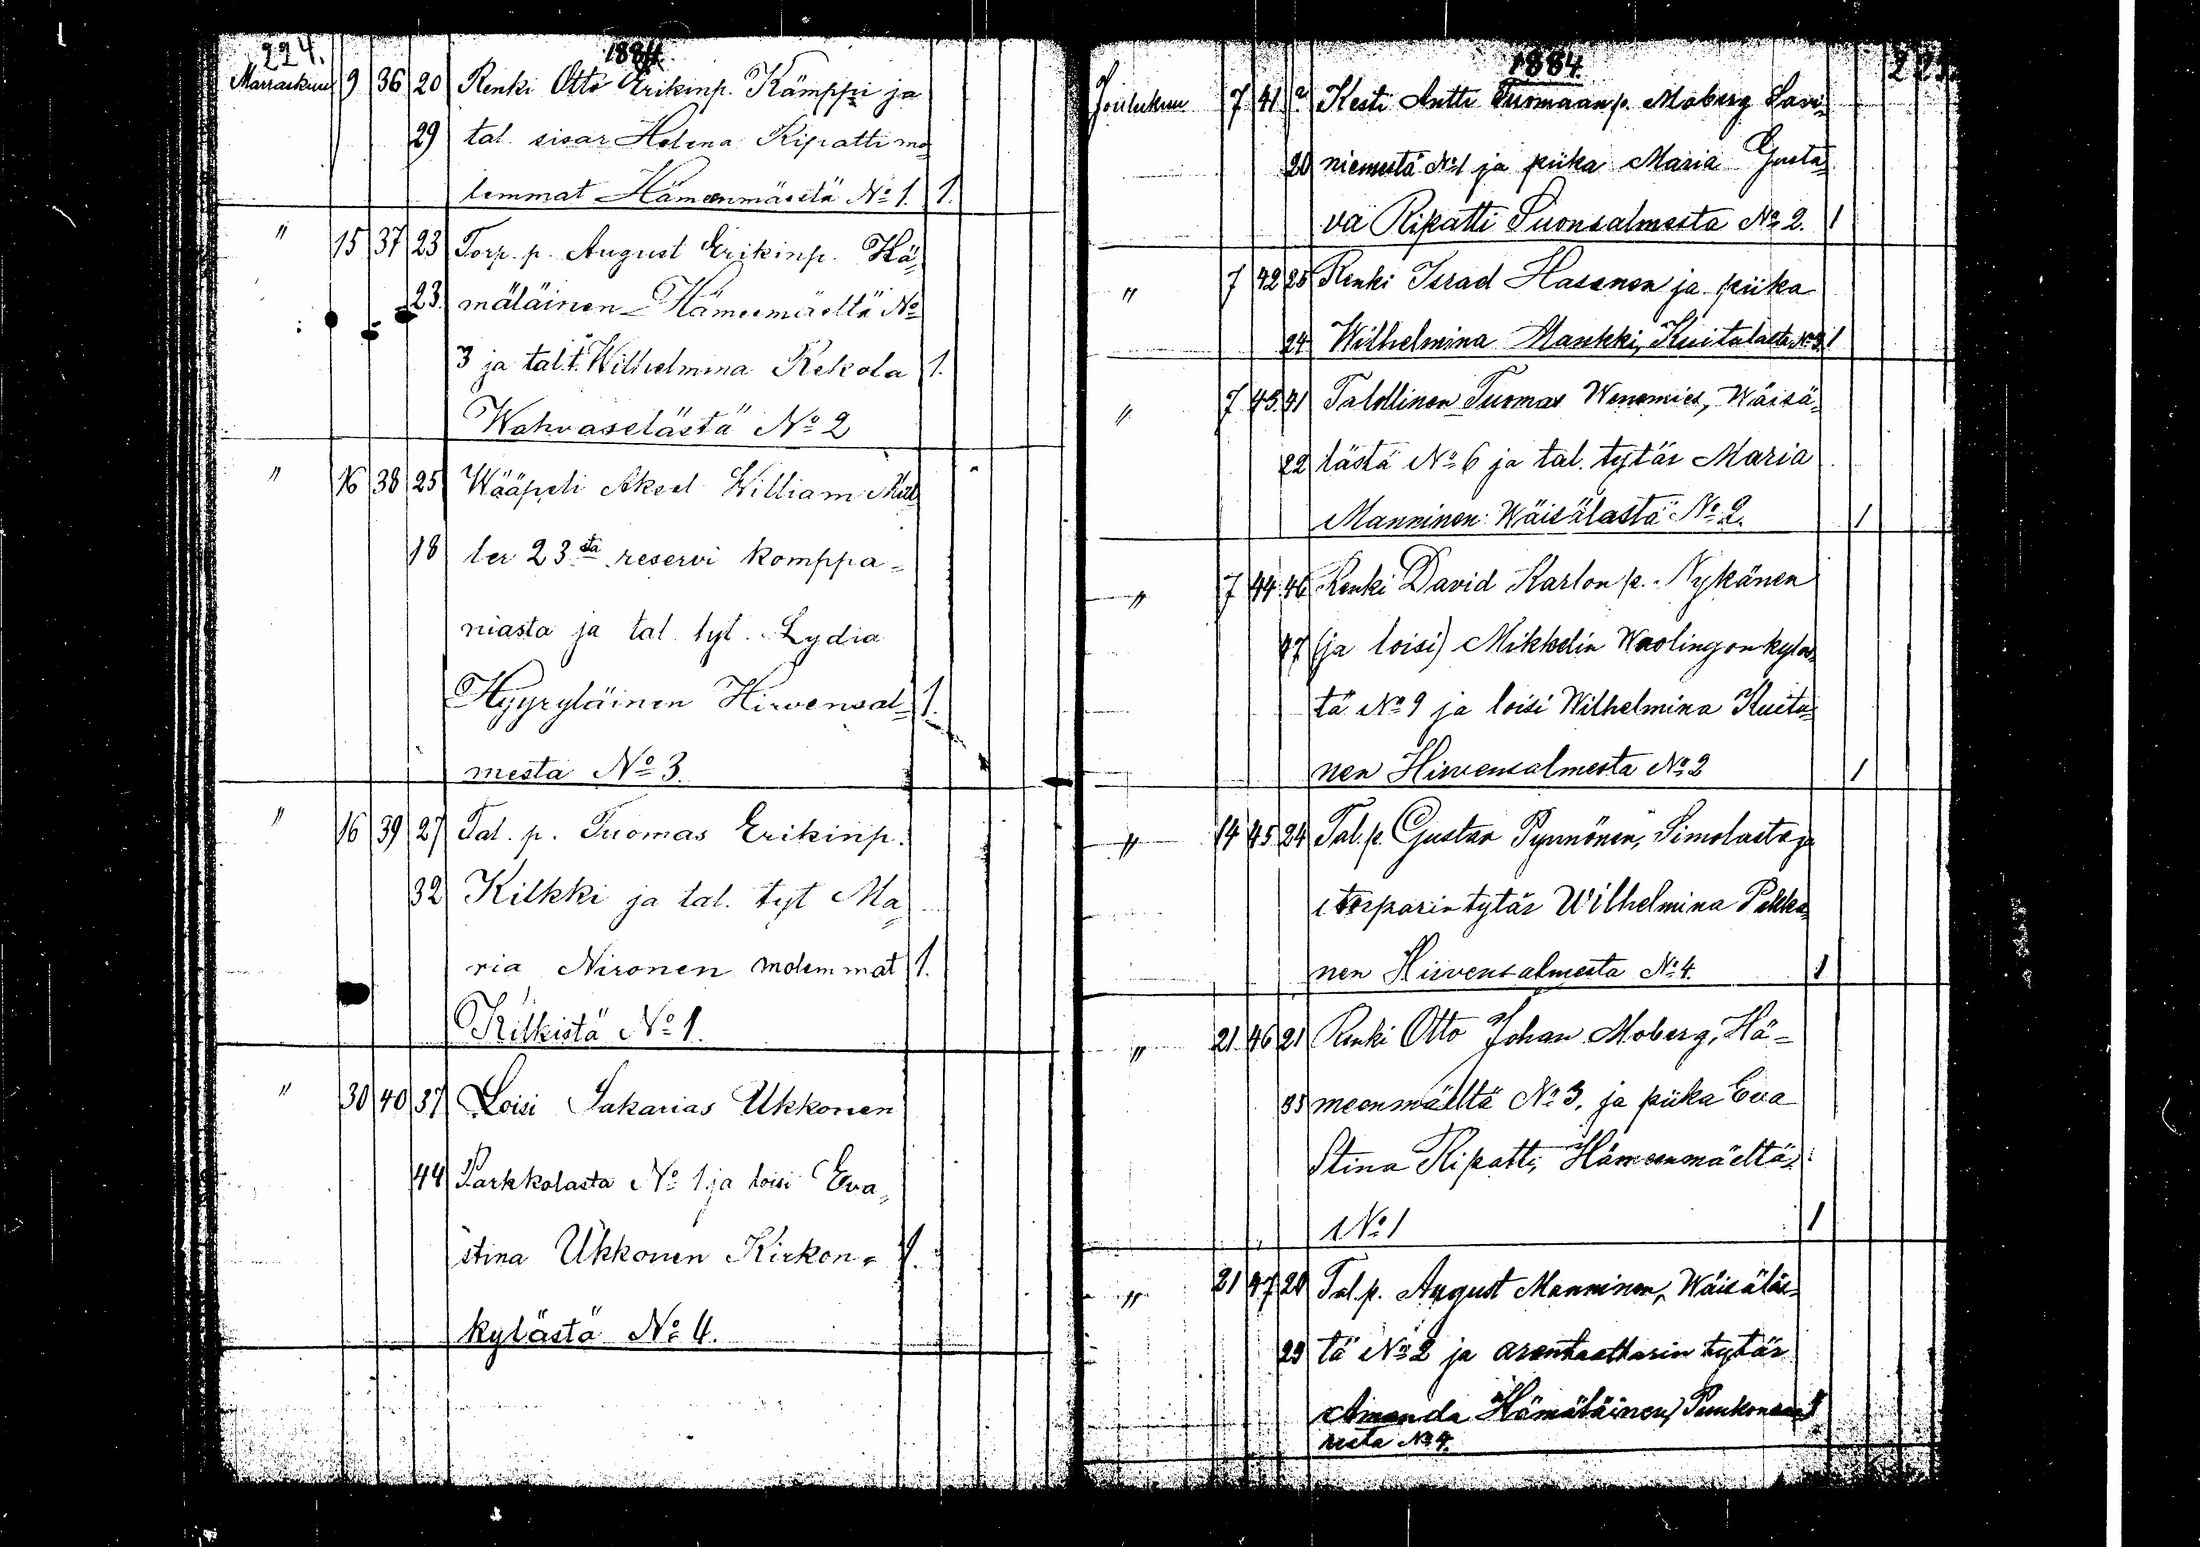 224.
1884
Marraskuu 9 36 20 Renki Otto Erikinp. Kämppi ja
29 tal. sisar Helena Ripatti mo=
lemmat Hämeenmäeltä No 1. 1.
" 15 37 23 Torp. p. August Erikinp. Hä=
23 mäläinen Hämeemäeltä No
3 ja tal.t. Wilhelmina Rekola 1.
Wahvaselästä No 2
" 16 38 25 Wääpeli Aksel William Mül
18 ler 23sta reservi komppa=
niasta ja tal. tyt. Lydia
Hyyryläinen Hirvensal= 1.
mesta No 3.
" 16 39 27 Tal. p. Tuomas Erikinp.
32 Kilkki ja tal. tyt Ma=
ria Nironen molemmat 1.
Kilkistä No 1.
" 30 40 37 Loisi Sakarias Ukkonen
44 Parkkolasta No 1 ja loisi Eva=
stina Ukkonen Kirkon= 1.
kylästä No 4.
1884
Joulukuu 7 41 Kesti Antti Tuomaan p. Moberg Savi=
20 niemestä No 1 ja piika Maria Gusta=
va Ripatti Suonsalmesta No 2. 1
" 7 42 25 Renki Israel Hasanen ja piika
24 Wilhelmina Mankki, Kuitulasta No 3 1
" 7 43 41 Talollinen Tuomas Wenemies, Wäisä=
22 lästä No 6 ja tal. tytär Maria
Manninen Wäisälästä No 2. 1
" 7 44 46 Renki David Karlon p. Nykänen
47 (ja loisi) Mikkelin
tä No 9 ja loisi Wilhelmina Kuitu=
nen Hirvensalmesta No 2 1
" 14 45 24 Tal. p. Gustav Pynnönen, Simolasta ja
torparin tytär Wilhelmina Pekka=
nen Hirvensalmesta No 4. 1
" 21 46 21 Renki Otto Johan Moberg, Hä=
35 meenmäeltä No 3. ja piika Eva
Stina Ripatti, Hämeenmäeltä
No 1 1
" 21 47 20 Tal. p. August Manninen, Wäisäläs=
23 tä No 2 ja arentaattarin tytär
Amanda Hämäläinen,
No 4.